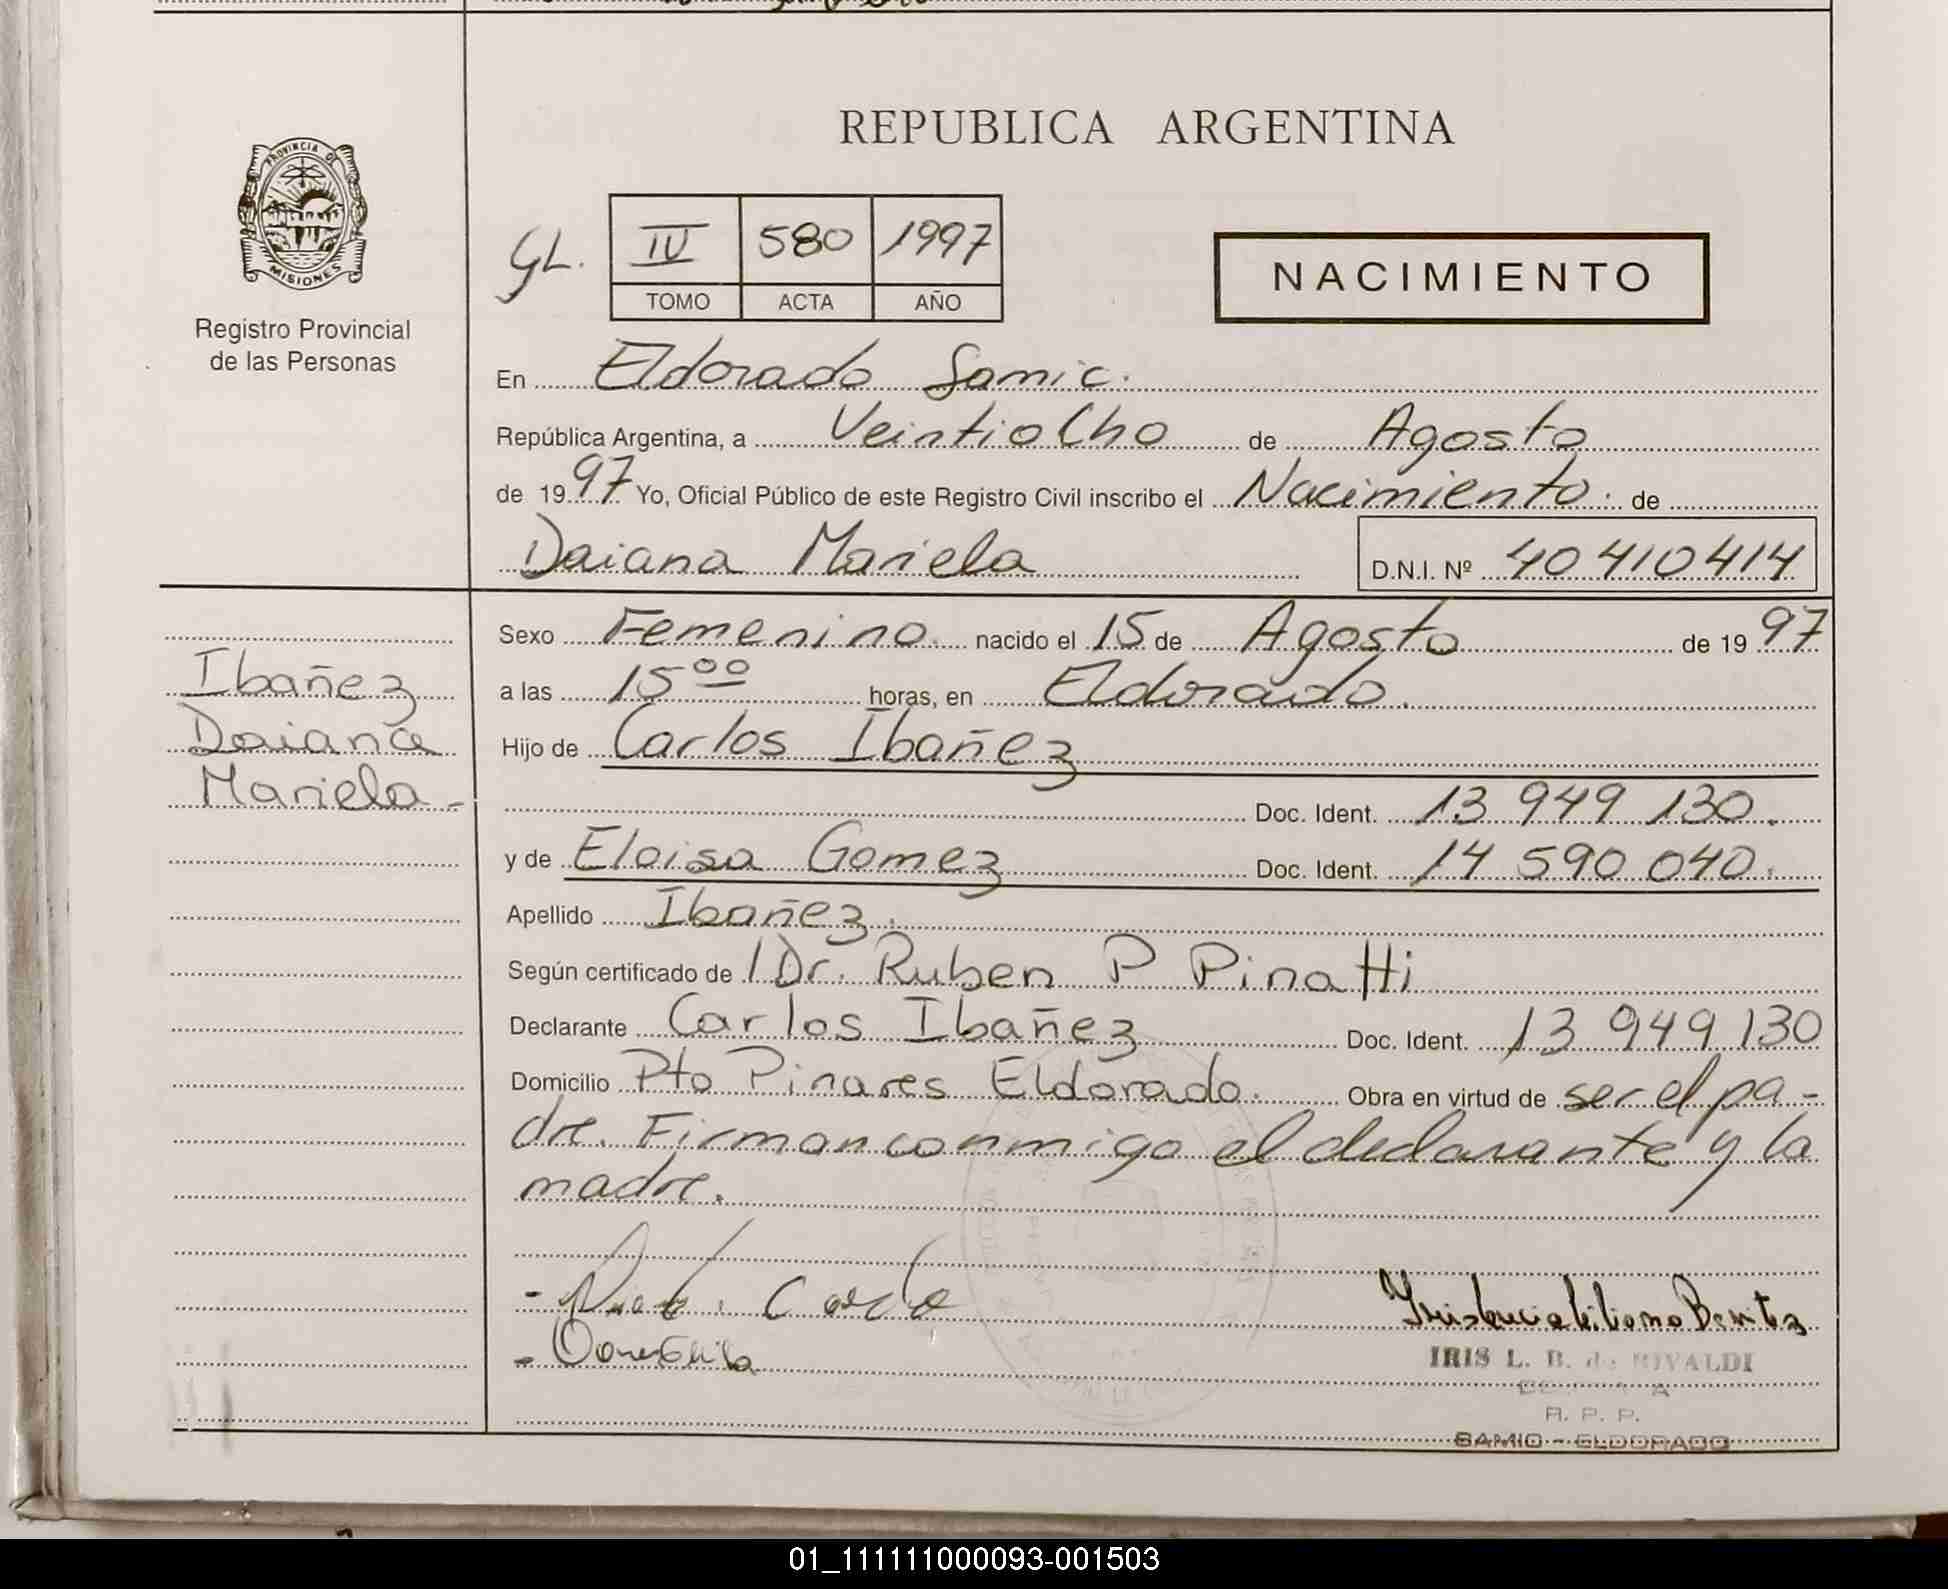 PROVINCIA DE
MISIONES
Registro Provincial
de las Personas
REPUBLICA ARGENTINA
GL. IV 580 1997
TOMO ACTA AÑO
NACIMIENTO
En Eldorado Samic.
República Argentina, a Veintiocho de Agosto
de 1997 Yo, Oficial Público de este Registro Civil inscribo el Nacimiento. de
Daiana Mariela D.N.I. Nº 40410414
Sexo Femenino. nacido el 15 de Agosto de 1997
a las 15 00 horas, en Eldorado.
Hijo de Carlos Ibañez
Doc. Ident. 13 949 130.
y de Eloisa Gomez Doc. Ident. 14 590 040.
Apellido Ibañez.
Según certificado de l Dr. Ruben P Pinatti
Declarante Carlos Ibañez Doc. Ident. 13 949 130
Domicilio Pto Pinares Eldorado. Obra en virtud de ser el pa-
dre. Firman conmigo el declarante y la
madre.
Ibañez
Daiana
Mariela-
IRIS L. B. de RIVALDI
R. P. P.
SAMIC - ELDORADO
01_111111000093-001503